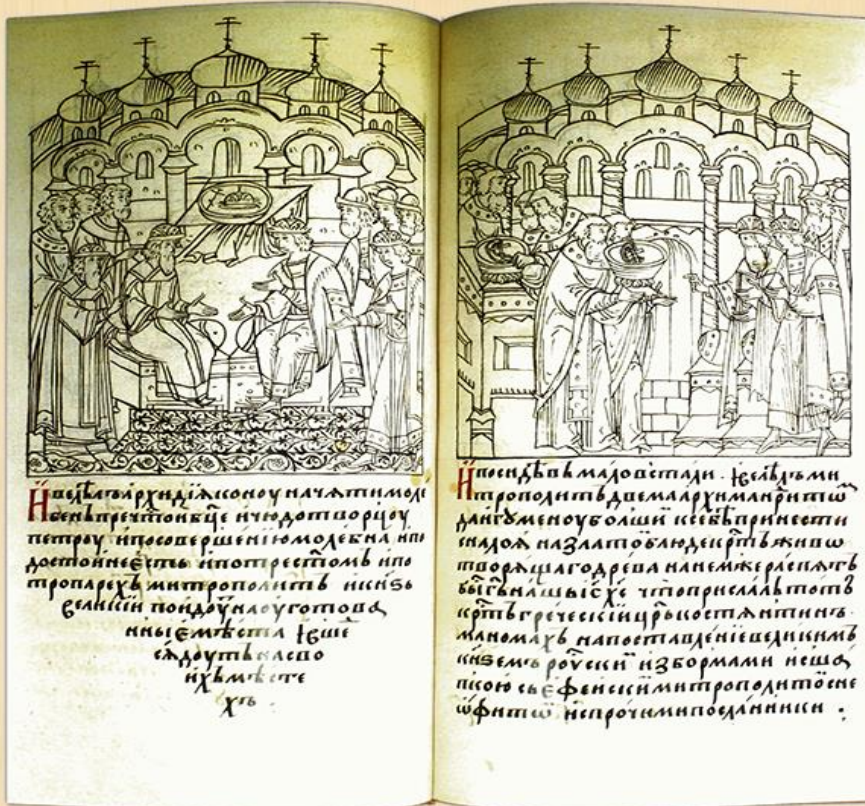 И велѣлъ архидїяконоу начяти моле
бенъ пречт҃ои бц҃е и чюдотворцоу
петроу и по совершенїю молебна и по
достоине єсть и по трест҃омъ и по
тропарехъ митрополитъ и кн҃ѕь
великїи поидоу на оуготова
нныє мѣста
сядоутъ на сво
ихъ мѣсте
хъ
И посидѣвъ мало въстали
трополитъ двема архимандритѡ
да игоуменоу болши к себѣ принести
на златѡ блюде крт҃ъ живо
творящаго древа на нем же распятъ
бы҃ бг҃ъ нашь іс҃ хс҃ что прислалъ тотъ
крт҃ъ греческїи цр҃ь костянтинъ
манамахъ на поставленїе великимъ
кн҃ѕемъ роускї и з бормами и с ша
пкою съ єфеискї митрополитѡ с не
ѡфитѡ и с прочими посланники